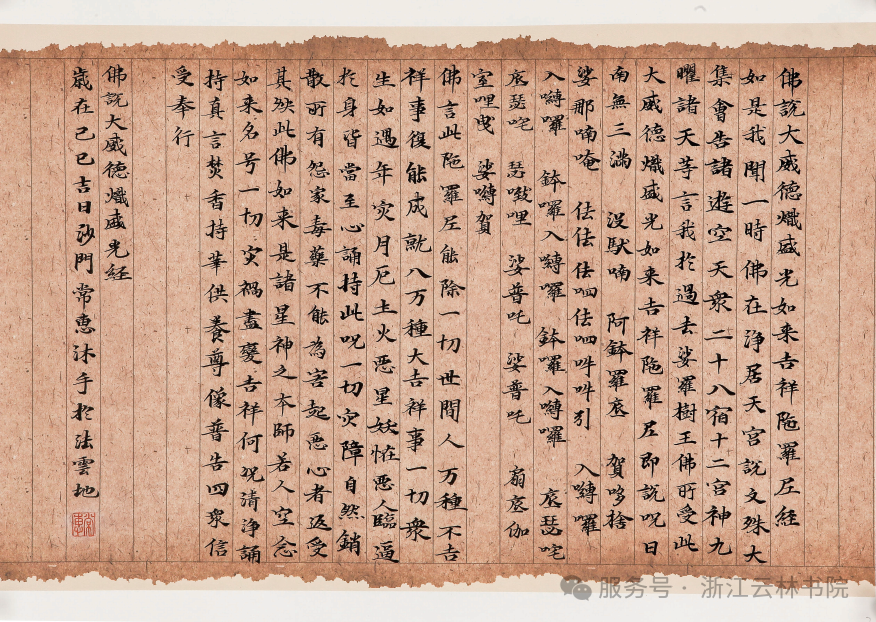 佛說大威德熾盛光如来吉祥陁羅尼経
如是我聞一時佛在浄居天宮説文殊大
集會告諸遊空天衆二十八宿十二宮神九
曜諸天等言我扵過去娑羅樹王佛所受此
大威德熾盛光如来吉祥陁羅尼即説呪曰
南無三満 没馱喃 阿鉢羅底 賀哆捨
娑那喃唵 佉佉 佉呬佉呬吽吽引 入嚩羅
入嚩羅 鉢羅入嚩羅 鉢羅入嚩羅 底瑟咤
底瑟咤 瑟哩 娑普吒 娑普吒 扇底伽
室哩曳 娑嚩賀
佛言此陁羅尼能除一切世間人万種不吉
祥事復能成就八万種大吉祥事一切衆
生如遇年灾月厄土火悪星妖恠悪人臨逼
扵身皆當至心誦持此呪一切灾障自然銷
散所有怨家毒藥不能為害起悪心者返受
其殃此佛如来是諸星神之本師若人空念
如来名号一切灾禍盡變吉祥何况清浄誦
持真言焚香持華供養尊像普告四衆信
受奉行
佛説大威德熾盛光経
歳在己巳吉日沙門常惠沐手扵法雲地
服务号 · 浙江云林书院